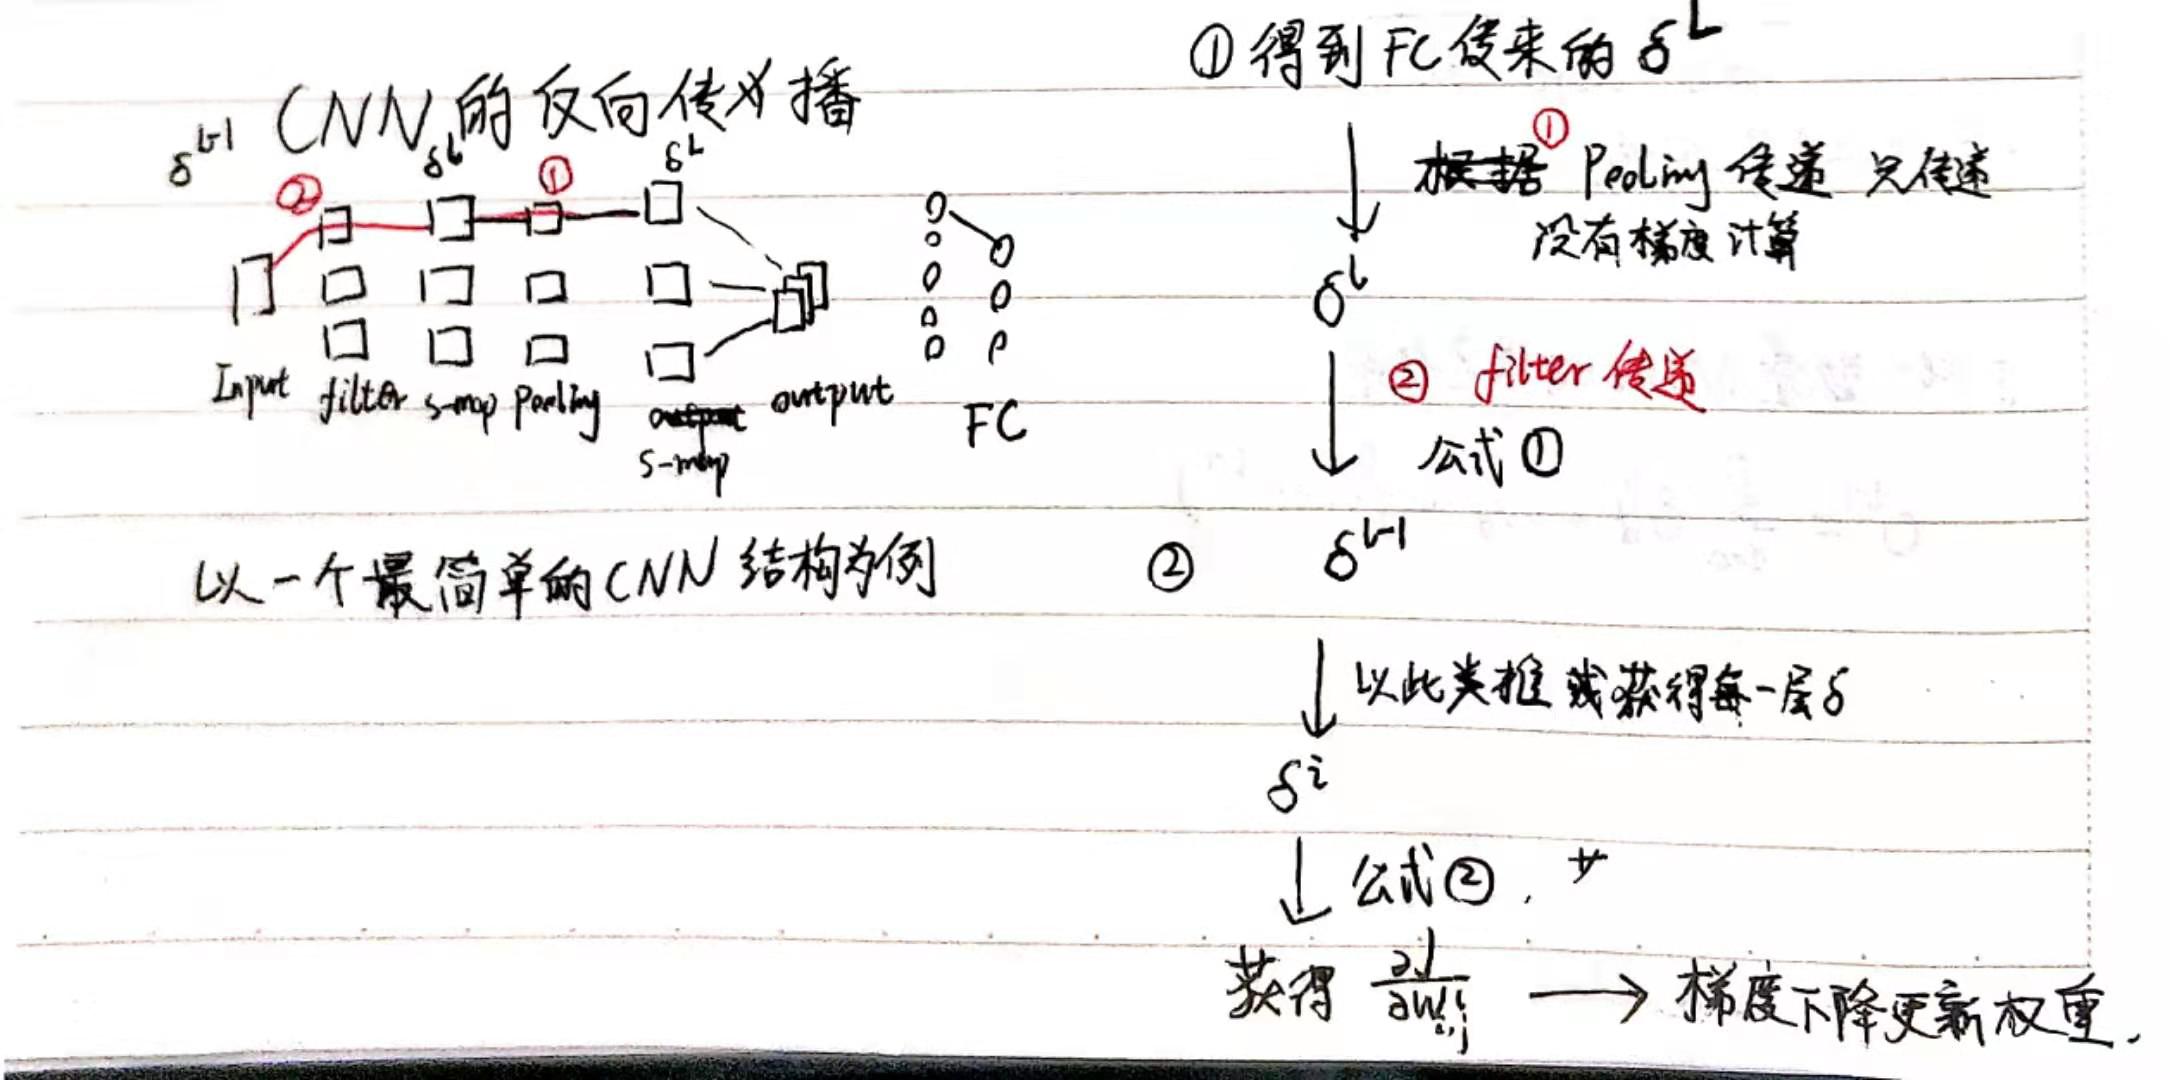 CNN的反向传播
δ^{l-1} δ^l δ^L
② ①
Input filter s-map Pooling output
s-map
FC
以一个最简单的CNN结构为例
① 得到FC传来的 δ^L
① Pooling 传递 只传递
没有梯度计算
δ^l
② filter 传递
公式①
② δ^{l-1}
以此类推 获得每一层δ
δ^i
公式②
获得 ∂J/∂W^l_{i,j} → 梯度下降更新权重.